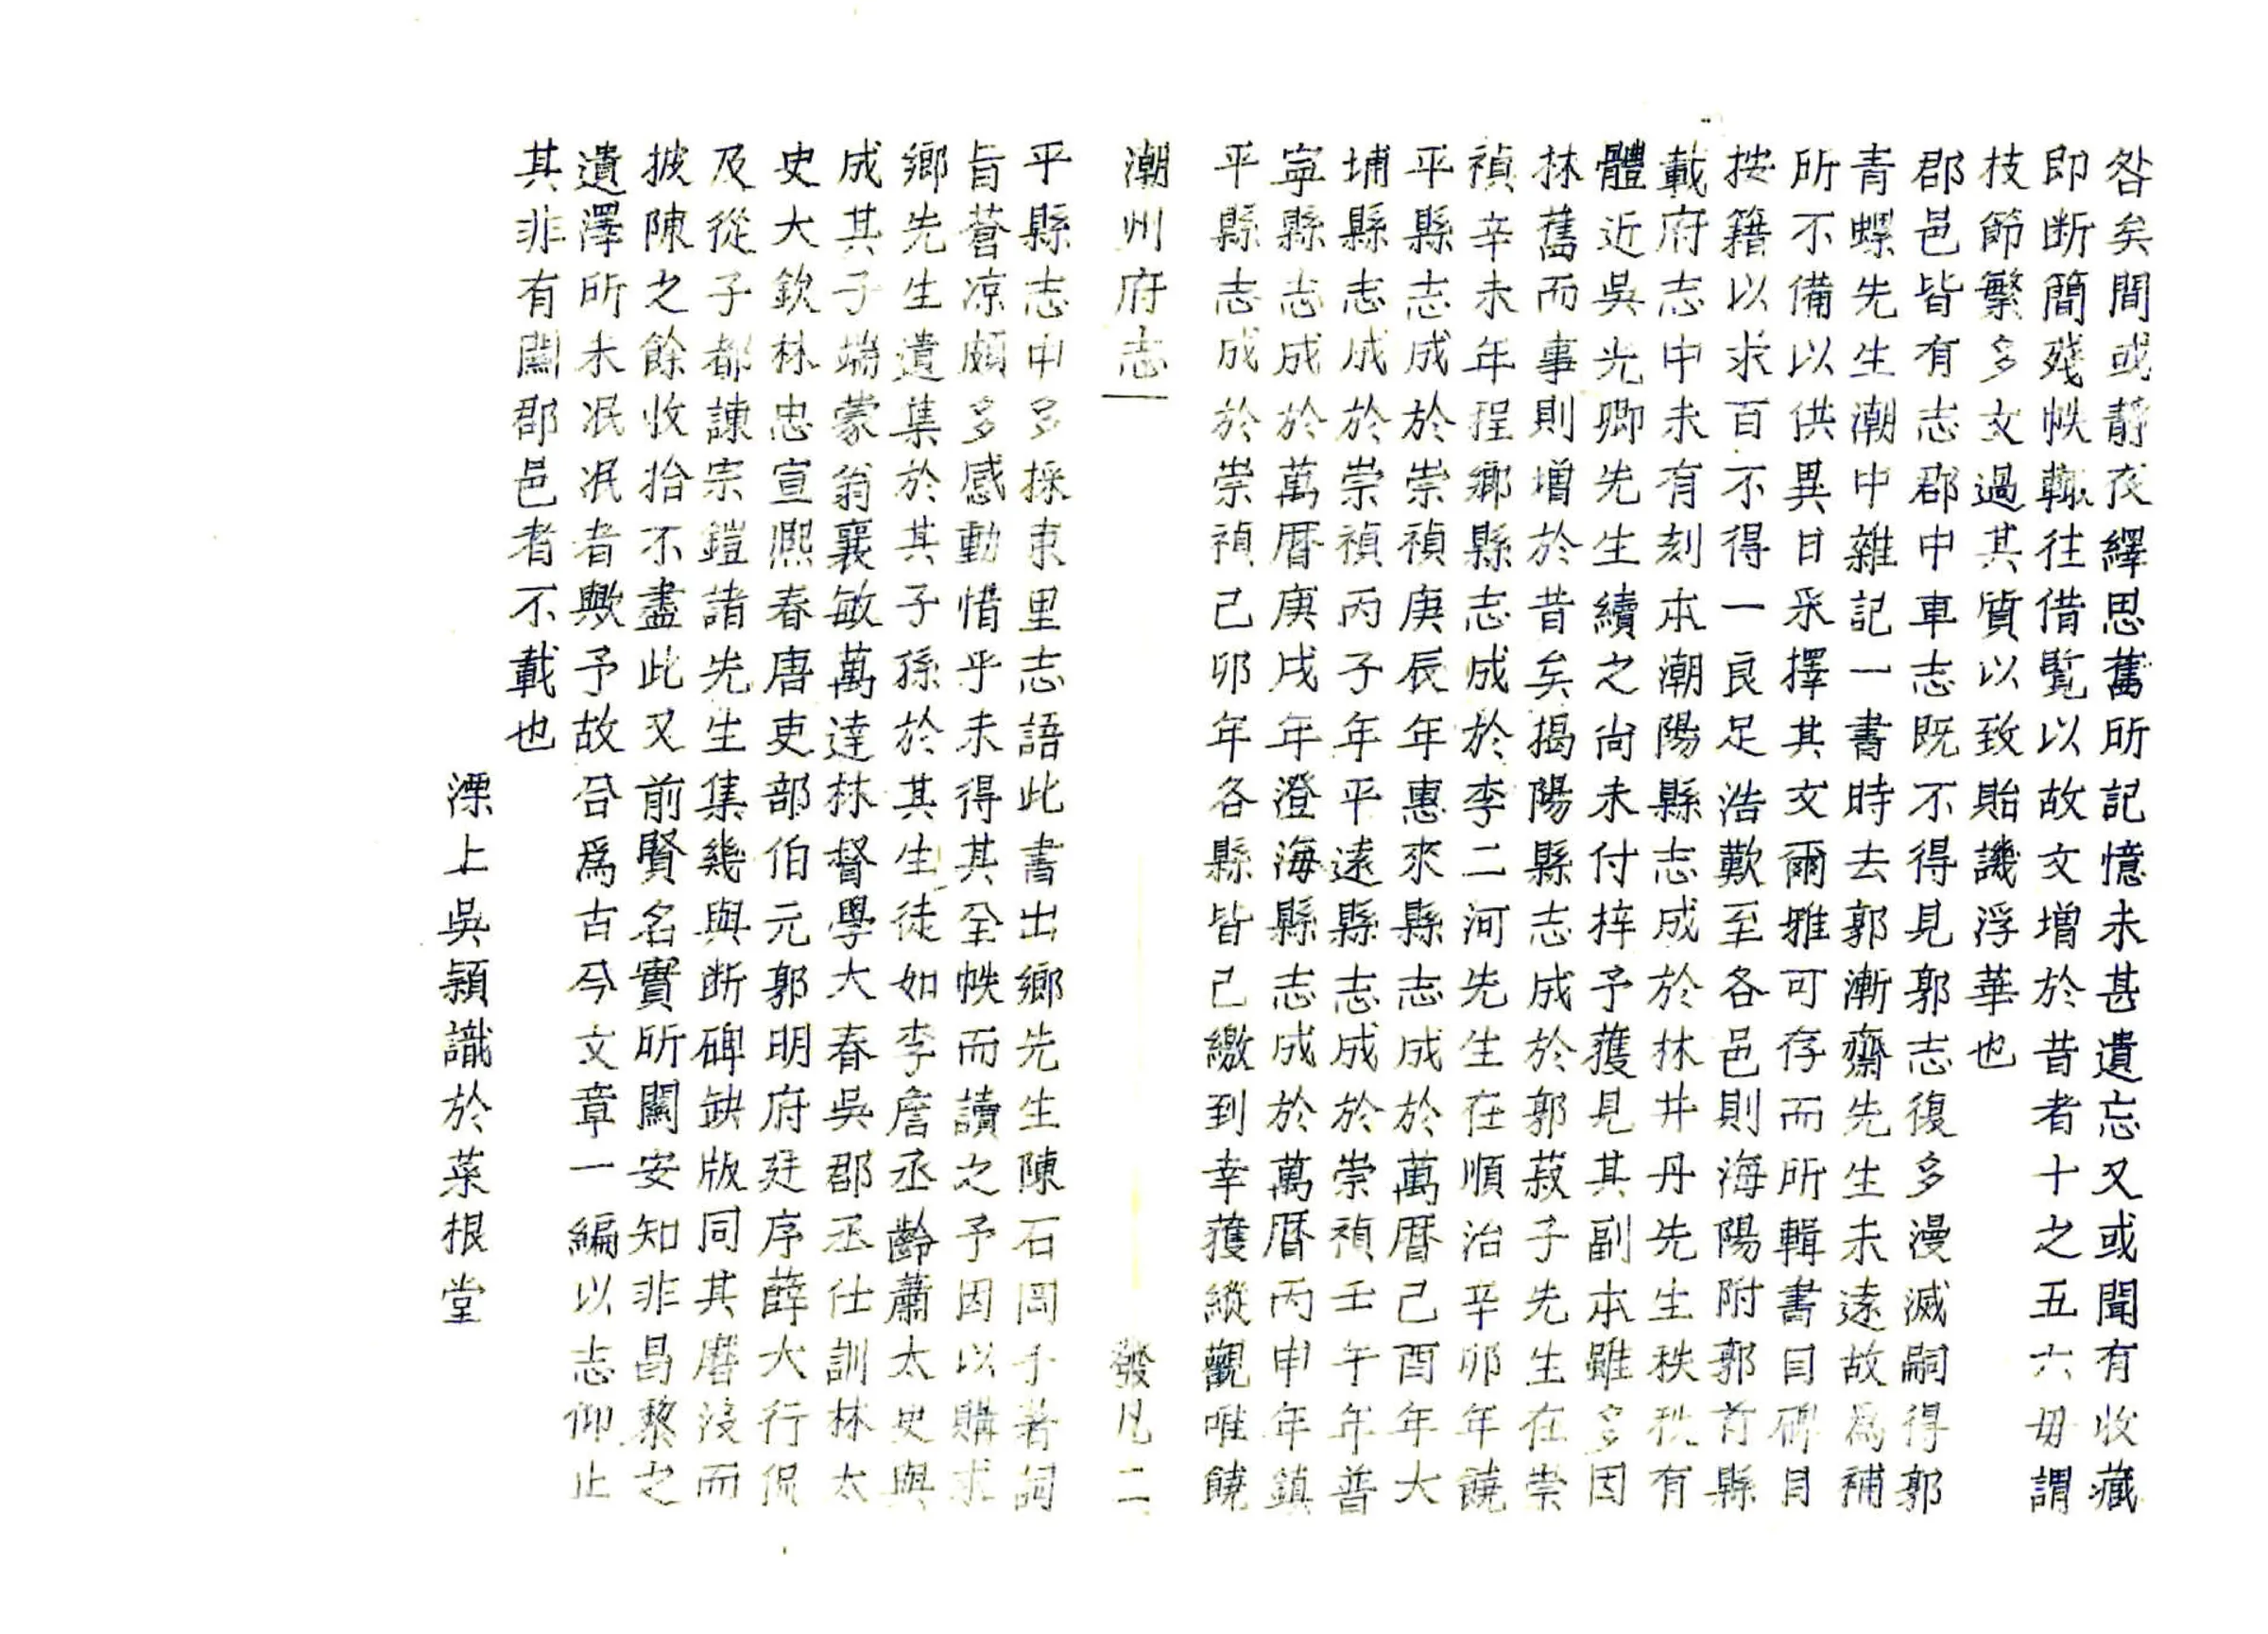 咎矣間或靜夜繹思舊所記憶未甚遺忘又或聞有收藏
即断簡殘帙輙往借覧以故文增於昔者十之五六毋謂
枝節繁多文過其質以致貽譏浮華也
郡邑皆有志郡中車志既不得見郭志復多漫滅嗣得郭
青螺先生潮中雜記一書時去郭漸齋先生未遠故為補
所不備以供異日采擇其文爾雅可存而所輯書目碑目
按籍以求百不得一良足浩歎至各邑則海陽附郭首縣
載府志中未有刻本潮陽縣志成於林井丹先生秩秩有
體近吳光卿先生續之尚未付梓予獲見其副本雖多因
抹舊而事則增於昔矣揭陽縣志成於郭菽子先生在崇
禎辛未年程鄉縣志成於李二河先生在順治辛卯年饒
平縣志成於崇禎庚辰年惠來縣志成於萬曆己酉年大
埔縣志成於崇禎丙子年平遠縣志成於崇禎壬午年普
寧縣志成於萬曆庚戌年澄海縣志成於萬曆丙申年鎮
平縣志成於崇禎己卯年各縣皆己繳到幸獲縱觀唯饒
潮州府志 發凡二
平縣志中多採東里志語此書出鄉先生陳石岡手著詞
旨蒼凉頗多感動惜乎未得其全帙而讀之予因以購求
鄉先生遺集於其子孫於其生徒如李詹丞齡蕭太史與
成其子端蒙翁襄敏萬達林督學大春吳郡丞仕訓林太
史大欽林忠宣熈春唐吏部伯元郭明府廷序薛大行侃
及從子都諫宗鎧諸先生集幾與断碑缺版同其磨沒而
披陳之餘收拾不盡此又前賢名實所關安知非昌黎之
遺澤所未泯泯者歟予故合爲古今文章一編以志仰止
其非有關郡邑者不載也
溧上吳穎識於菜根堂